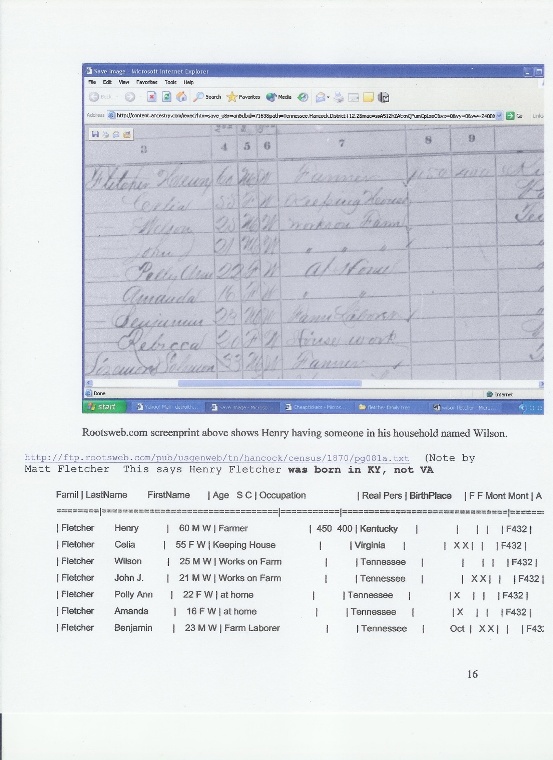 Save Image - Microsoft Internet Explorer
File Edit View Favorites Tools Help
Back Search Favorites Media
Address
Done Internet
start
3 4 5 6 7 8 9
Fletcher Henry 60 M W Farmer
Celia 55 F W Keeping House
Wilson 25 M W works on Farm
John J 21 M W " " "
Polly Ann 22 F W At Home
Amanda 16 F W " "
Benjamin M W Farm Laborer
Rebecca 20 F W House work
Solomon 33 M W Farmer
Rootsweb.com screenprint above shows Henry having someone in his household named Wilson.
http://ftp.rootsweb.com/pub/usgenweb/tn/hancock/census/1870/pg081a.txt (Note by
Matt Fletcher This says Henry Fletcher was born in KY, not VA
Famil | LastName FirstName | Age S C | Occupation | Real Pers | BirthPlace | F F Mont Mont | A
| Fletcher Henry | 60 M W | Farmer | 450 400 | Kentucky | | | | F432 |
| Fletcher Celia | 55 F W | Keeping House | | Virginia | X X | | | F432 |
| Fletcher Wilson | 25 M W | Works on Farm | | Tennessee | | | | F432 |
| Fletcher John J. | 21 M W | Works on Farm | | Tennessee | X X | | | F432 |
| Fletcher Polly Ann | 22 F W | at home | | Tennessee | | X | | | F432 |
| Fletcher Amanda | 16 F W | at home | | Tennessee | | X | | | F432 |
| Fletcher Benjamin | 23 M W | Farm Laborer | | Tennessee | Oct | X X | | | F432
16